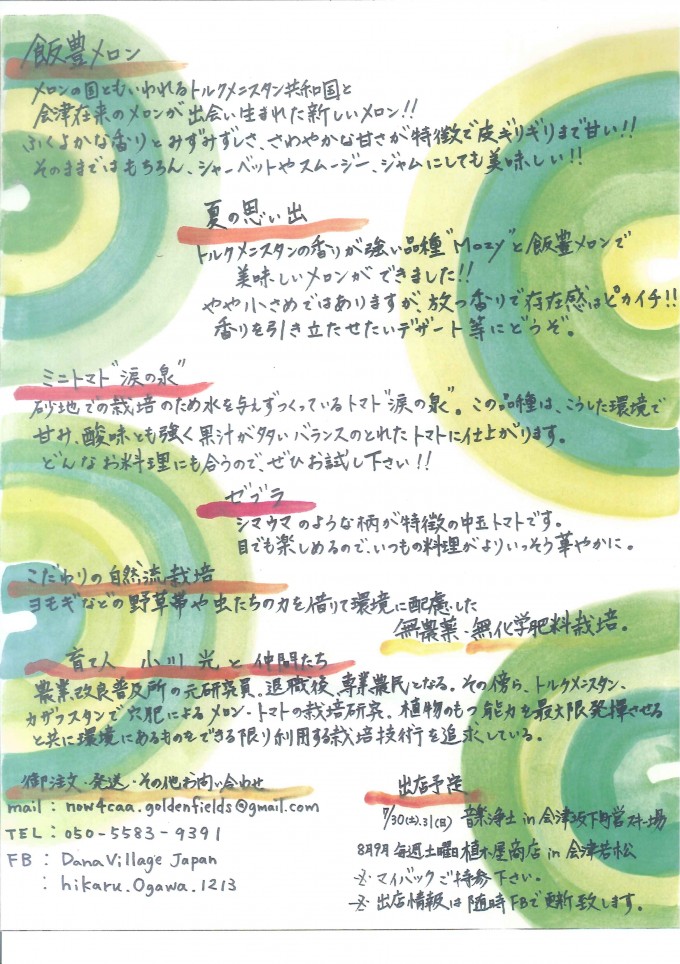 飯豊メロン
メロンの国ともいわれるトルクメニスタン共和国と
会津在来のメロンが出会い生まれた新しいメロン!!
ふくよかな香りとみずみずしさ、さわやかな甘さが特徴で皮ぎりぎりまで甘い!!
そのままではもちろん、シャーベットやスムージー、ジャムにしても美味しい!!
夏の思い出
トルクメニスタンの香りが強い品種"Mozy"と飯豊メロンで
美味しいメロンができました!!
やや小さめではありますが、放つ香りで存在感はピカイチ!!
香りを引き立たせたいデザート等にどうぞ。
ミニトマト"涙の泉"
砂地での栽培のため水を与えずつくっているトマト"涙の泉"。この品種は、こうした環境で
甘み、酸味とも強く果汁が多いバランスのとれたトマトに仕上がります。
どんなお料理にも合うので、ぜひお試し下さい!!
ゼブラ
シマウマのような柄が特徴の中玉トマトです。
目でも楽しめるので、いつもの料理がよりいっそう華やかに。
こだわりの自然流栽培
ヨモギなどの野草帯や虫たちの力を借りて環境に配慮した
無農薬・無化学肥料栽培。
育て人 小川 光と仲間たち
農業改良普及所の元研究員。退職後、専業農民となる。その傍ら、トルクメニスタン、
カザフスタンで穴肥によるメロン・トマトの栽培研究。植物のもつ能力を最大限発揮させる
と共に環境にあるものをできる限り利用する栽培技術を追求している。
御注文・発送・その他お問い合わせ
mail : now4caa.goldenfields@gmail.com
TEL : 050-5583-9391
FB : DanaVillage Japan
: hikaru.Ogawa.1213
出店予定
7/30(土).31(日) 音楽浄土 in 会津坂下町営スキー場
8月9月 毎週土曜日 植木屋商店 in 会津若松
※ マイバックご持参下さい。
※ 出店情報は随時FBで更新致します。